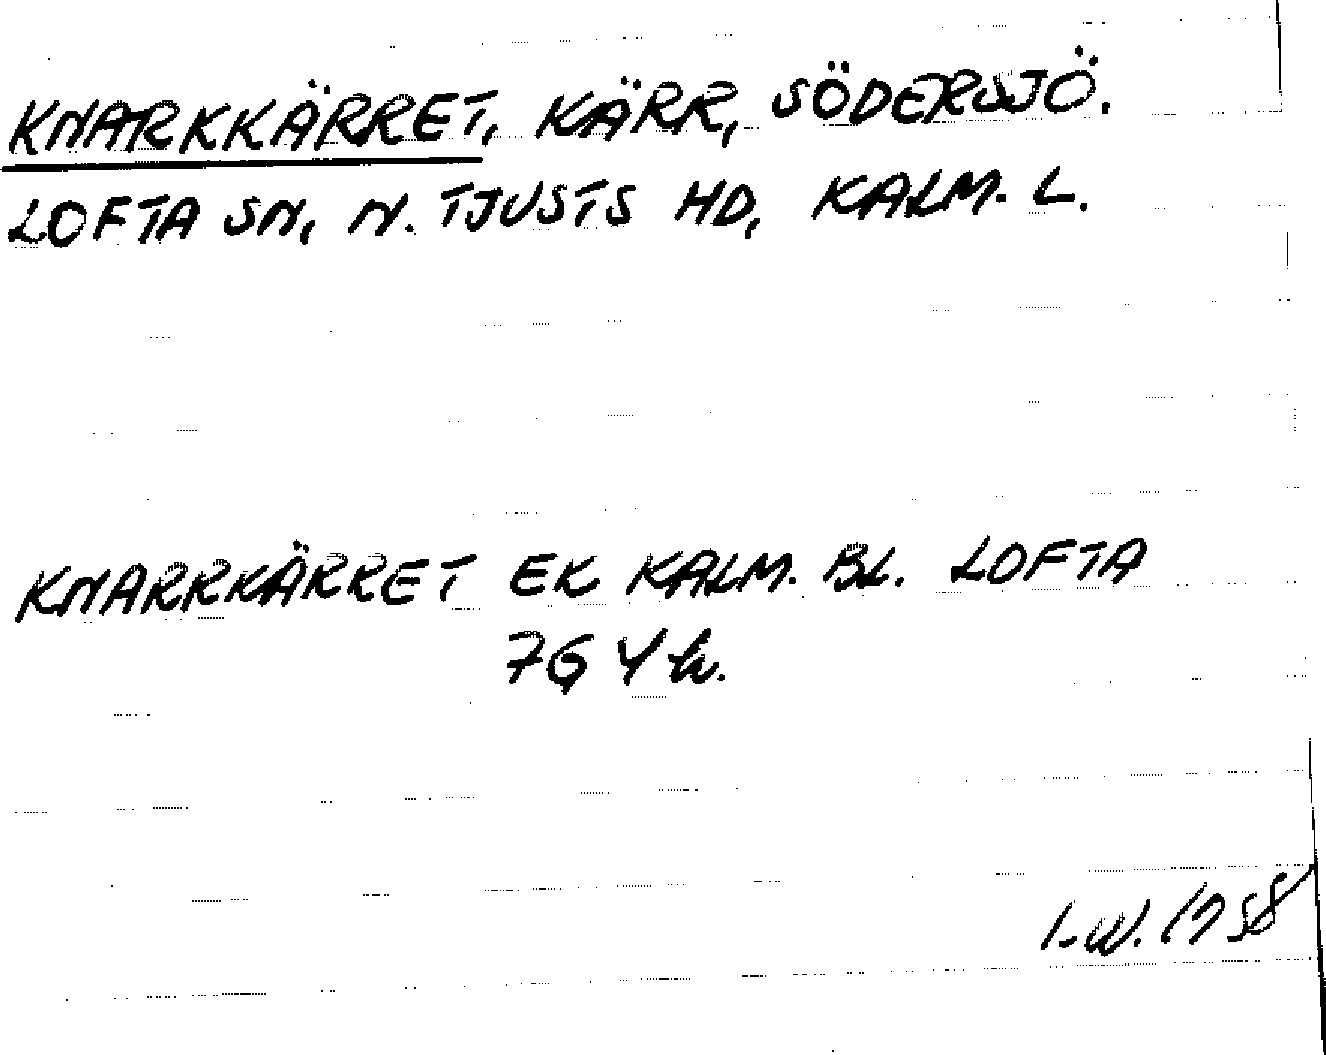 KNARKKÄRRET, KÄRR, SÖDERSJÖ.
LOFTA SN, N. TJUSTS HD, KALM. L.
KNARRKÄRRET EK KALM. BL. LOFTA
7G 4h.
I-W. 1958